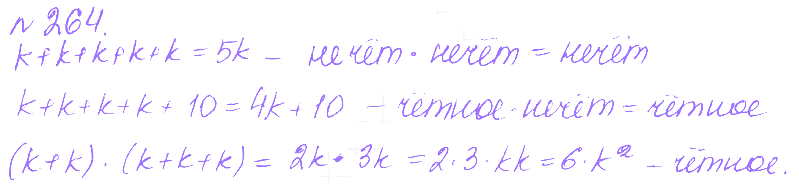 № 264.
k+k+k+k+k = 5k – нечёт · нечёт = нечёт
k+k+k+k+10 = 4k+10 – чётное · нечёт = чётное
(k+k) · (k+k+k) = 2k · 3k = 2·3·kk = 6·k² – чётное.